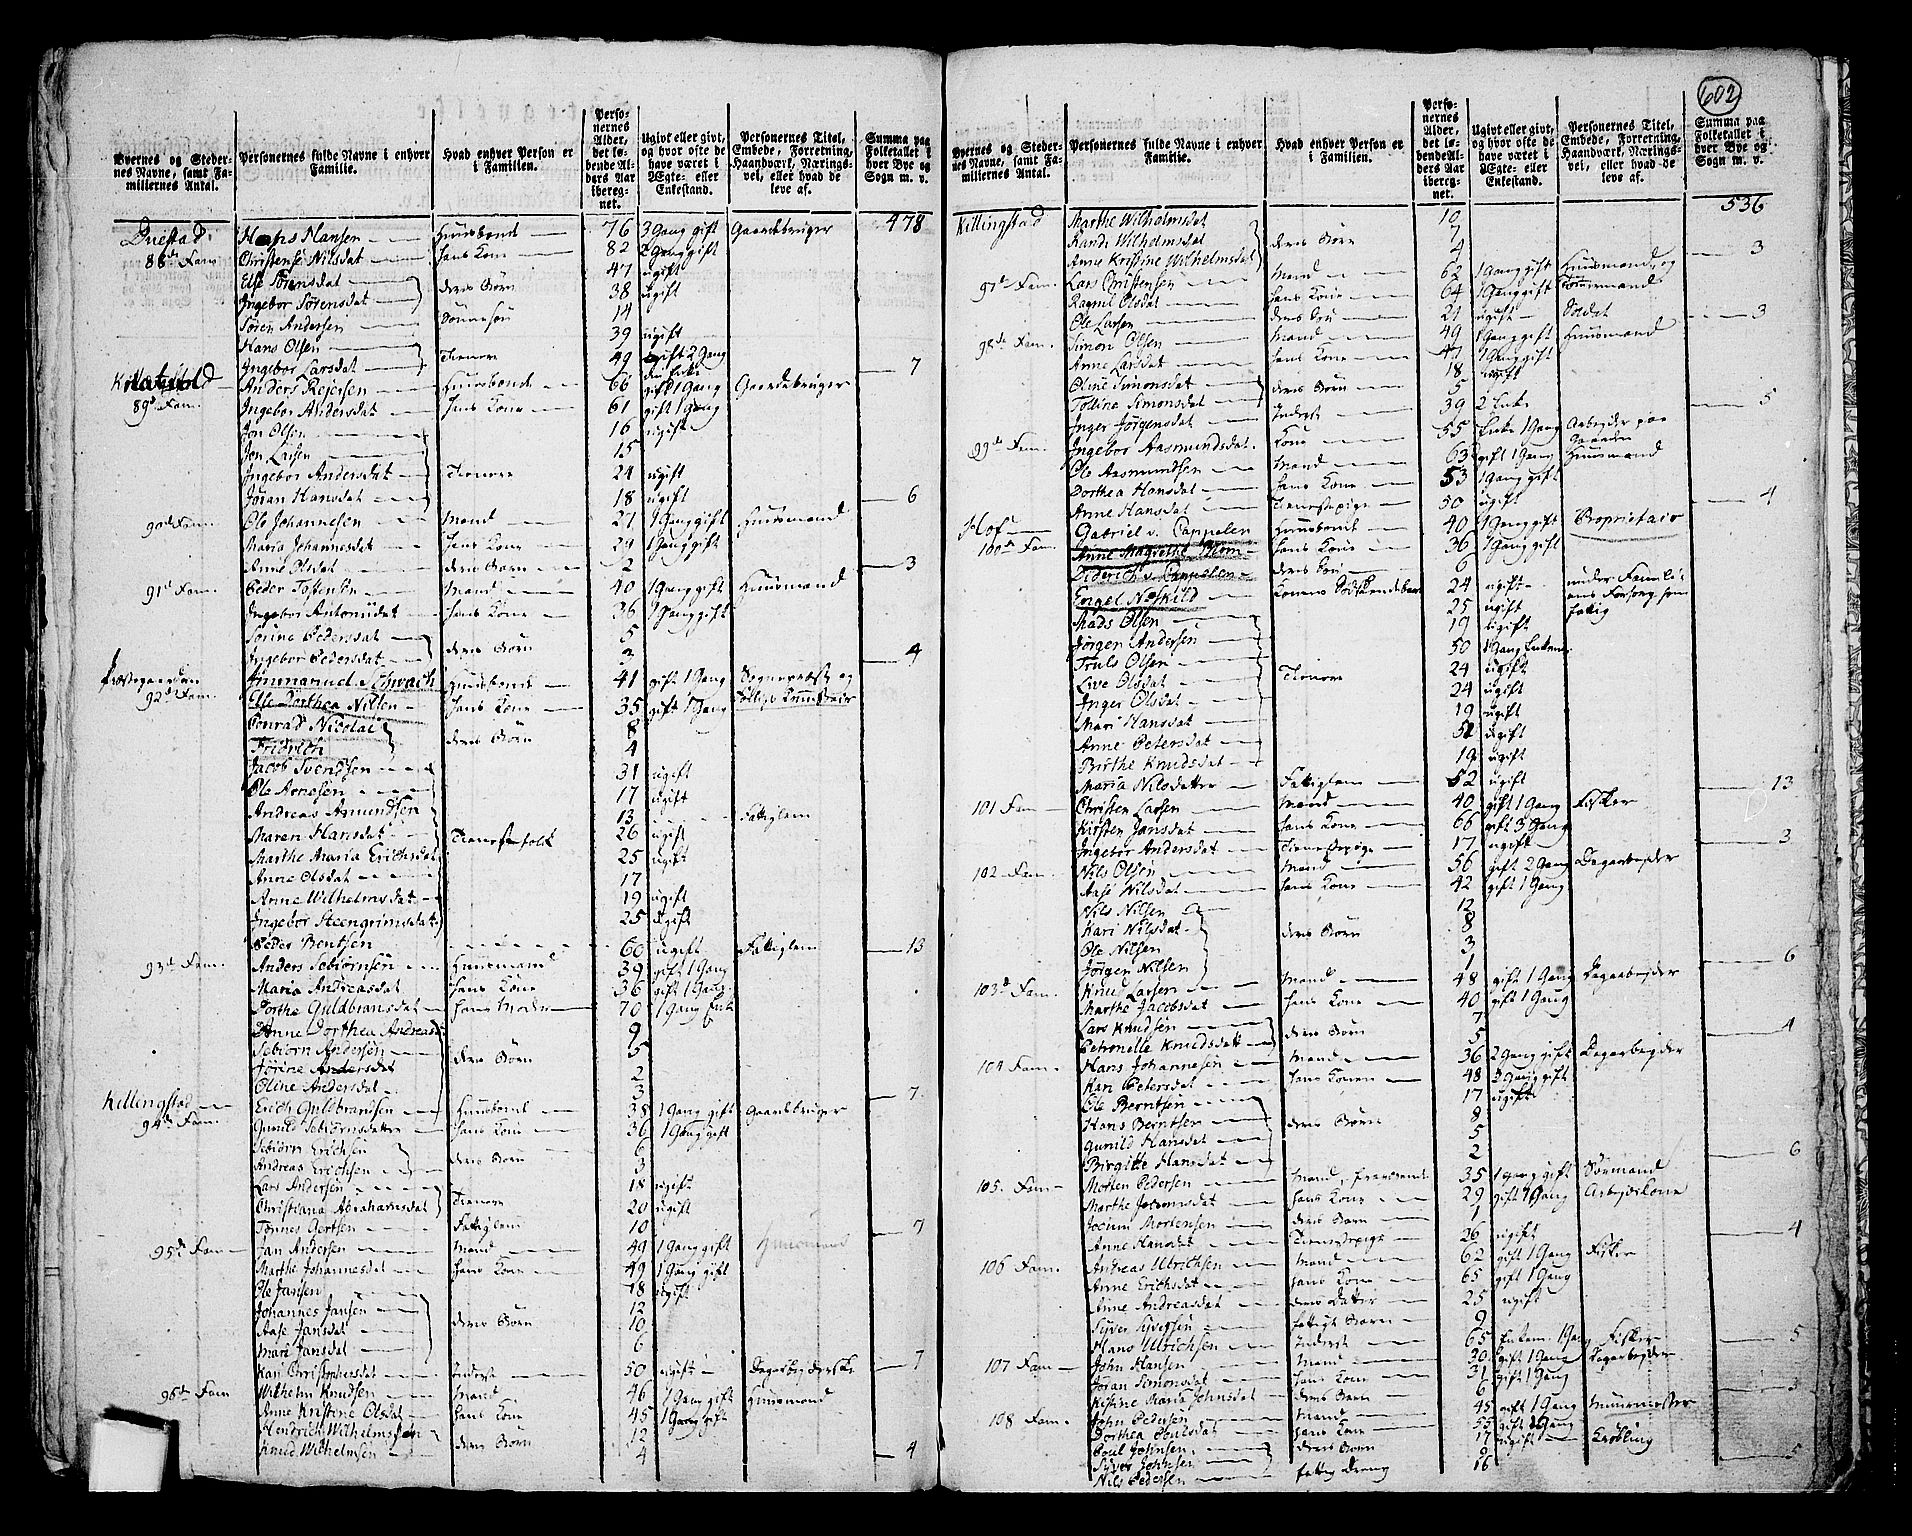 602
Byernes og Stedernes Navne, samt Familiernes Antal.
Personernes fulde Navne i enhver Familie.
Hvad enhver Person er i Familien.
Personernes Alder, det løbende Alders Aar iberegnet.
Ugivt eller givt, og hvor ofte de have været i Ægte- eller Enkestand.
Personernes Titel, Embede, Forretning, Haandværk, Næringsvei, eller hvad de leve af.
Summa paa Folketallet i hver Bye og Sogn m. v.
478
Hans Hansen Huusbonde 76 3 Gang gift Gaardebruger
88de Fam. Christense Nilsdat hans Kone 82 2 Gang gift
Else Sørensdat 47 ugift
Ingebor Sørensdat deres Børn 38 ugift
Søren Andersen Sønnesøn 14
Hans Olsen 39 ugift
Ingebor Larsdat Tienere 49 gift 2 Gang 7
Anders Rejersen Huusbonde 66 gift 1 Gang Gaardebruger
89d Fam. Ingebor Andersdat hans Kone 61 gift 1 Gang
Jon Olsen 16 ugift
Jon Larsen 15
Ingebor Andersdat Tienere 24 ugift
Jøran Hansdat 18 ugift 6
90d Fam. Ole Johannesen Mand 27 1 Gang gift Huusmand
Maria Johannesdat hans Kone 29 1 Gang gift
Anne Olsdat deres Børn 2 3
91d Fam. Peder Tostensen Mand 40 1 Gang gift Huusmand
Ingebor Antonidat hans Kone 36 1 Gang gift
Sørine Pedersdat 5
Ingebor Pedersdat deres Børn 3 4
Præstegaarden Immanuel Schwach Huusbonde 41 gift 1 Gang Sognepræst og
92d Fam. Else Dorthea Nilsen hans Kone 35 gift 1 Gang
Conrad Nicolai 8
Fridrich deres Børn 4
Jacob Svendsen 31 ugift
Ole Arnesen 17 ugift
Andreas Amundsen 13 Fattiglem
Maren Hansdat Tienestefolk 26 ugift
Marthe Maria Erichsdat 25 ugift
Anne Olsdat 17
Anne Wilhelmsdat 19 ugift
Ingebor Steengrimsdatt 25 ugift
Peder Bentsen 60 ugift Fattiglem 13
93d Fam. Anders Sebiørnsen Huusmand 39 gift 1 Gang
Maria Andreasdat hans Kone 36 gift 1 Gang
Torthe Guldbransdat hans Moder 70 1 Gang Enk
Anne Dorthea Andreasd 9
Sebiørn Andersen deres Børn 5
Jorine Andersdat 2
Oline Andersdat 3 7
Killingstad Erich Guldbrandsen Huusbonde 38 1 Gang gift Gaardebruger
94de Fam. Gunild Sebiørnsdatter hans Kone 36 1 Gang gift
Sebiørn Erichsen 6
Andreas Erichsen deres Børn 3
Lars Andersen 18 ugift
Christiana Abrahamsdat Tienere 20 ugift
Tønnes Gertsen Fattiglem 10 7
95de Fam. Jan Andersen Mand 49 1 Gang gift Huusmand
Marthe Johannesdat hans Kone 49 1 Gang gift
Ole Jansen 18 ugift
Johannes Jansen 12
Aase Jansdat deres Børn 10
Mari Jansdat 6
Kari Christophersdat Inderst 50 ugift 7
96de Fam Wilhelm Knudsen Mand 46 1 Gang gift Huusmand
Anne Kristine Olsdat hans Kone 45 1 Gang gift
Hendrich Wilhelmsen 12
Knud Wilhelmsen deres Børn 4 4
Byernes og Stedernes Navne, samt Familiernes Antal.
Personernes fulde Navne i enhver Familie.
Hvad enhver Person er i Familien.
Personernes Alder, det løbende Alders Aar iberegnet.
Ugivt eller givt, og hvor ofte de have været i Ægte- eller Enkestand.
Personernes Titel, Embede, Forretning, Haandværk, Næringsvei, eller hvad de leve af.
Summa paa Folketallet i hver Bye og Sogn m. v.
536
Killingstad Marthe Wilhelmsdat 10
Randi Wilhelmsdat deres Børn 7
Anne Kristine Wilhelmsdat 4 3
97d Fam. Lars Christensen Mand 62 1 Gang gift Huusmand og
Ragnil Olsdat hans Kone 64 1 Gang gift
Ole Larsen deres Søn 21 ugift Soldat 3
98de Fam. Simon Olsen Mand 49 1 Gang gift Huusmand
Anne Larsdat hans Kone 47 1 Gang gift
Oline Simonsdat 18 ugift
Tolline Simonsdat deres Børn 5
Inger Jørgensdat Inderst 39 2 Enke 5
99de Fam. Ingebor Aasmundsdat Kone 55 Enke 1 Gang Arbejder paa Gaarden
Ole Aasmundsen Mand 63 gift 1 Gang Huusmand
Dorthea Hansdat hans Kone 53 1 Gang gift
Anne Hansdat Tienestepige 50 ugift 4
Hof Gabriel v. Cappelen Huusbonde 40 1 Gang gift Proprietair
100de Fam. Anne Magrethe Blom hans Kone 36 1 Gang gift
Diderich v. Cappelen deres Søn 6
Engel Neskild Konens Sødskendebarn 24 ugift under Familiens Forsorg som fattig
Mads Olsen 25 ugift
Jørgen Andersen 19 ugift
Truls Olsen 50 1 Gang Enkem
Live Olsdat Tienere 24 ugift
Inger Olsdat 24 ugift
Mari Hansdat 19 ugift
Anne Petersdat 51 ugift
Birthe Knudsdat 19 ugift
Maria Nilsdatter Fattiglem 52 ugift 13
101 Fam Christen Larsen Mand 40 gift 1 Gang Fisker
Kirsten Jansdat hans Kone 66 gift 3 Gang
Ingebor Andersdat Tienestepige 17 ugift 3
102 Fam. Nils Olsen Mand 56 gift 2 Gang Dagarbejder
Aase Nilsdat hans Kone 42 gift 1 Gang
Nils Nilsen 12
Kari Nilsdat deres Børn 8
Ole Nilsen 3
Jørgen Nilsen 1 6
103d Fam. Knud Larsen Mand 48 gift 1 Gang Dagarbejder
Marthe Jacobsdat hans Kone 40 gift 1 Gang
Lars Knudsen 7
Petronelle Knudsdatt deres Børn 5 4
104 Fam. Hans Johannesen Mand 36 2 Gang gift Dagarbejder
Kari Petersdat hans Kone 48 2 Gang gift
Ole Berntsen 17 ugift
Hans Berntsen deres Børn 8
Gunild Hansdat 5
Birgitte Hansdat 2 6
105. Fam Morten Pedersen Mand, fraværende 35 1 gang gift Søemand
Marthe hans Kone 29 gift 1 Gang Arbejdskone
Jocum Mortensen deres Barn 1
Anne Hansdat Tienestepige 26 ugift 4
106 Fam. Andreas Ulrichsen Mand 62 gift 1 Gang Fisker
Anne Erichsdat hans Kone 65 gift 1 Gang
Anne Andreasdat deres Datter 25 ugift
Syver Syversen fattigt Barn 9
Hans Ulrichsen Inderst 65 Enkem. 1 Gang Fisker 5
107 Fam John Hansen Mand 30 gift 1 Gang Dagarbejder
Jøran Simonsdat hans Kone 31 gift 1 Gang
Kistine Maria Johnsdat deres Barn 6 3
108 Fam. John Pedersen Mand 45 gift 1 Gang Muurmester
Dorthea Poulsdat hans Kone 55 gift 2 Gang
Poul Johnsen deres Børn 17 ugift Krøbling
Syver Johnsen 9
Nils Pedersen fattig Dreng 16 5